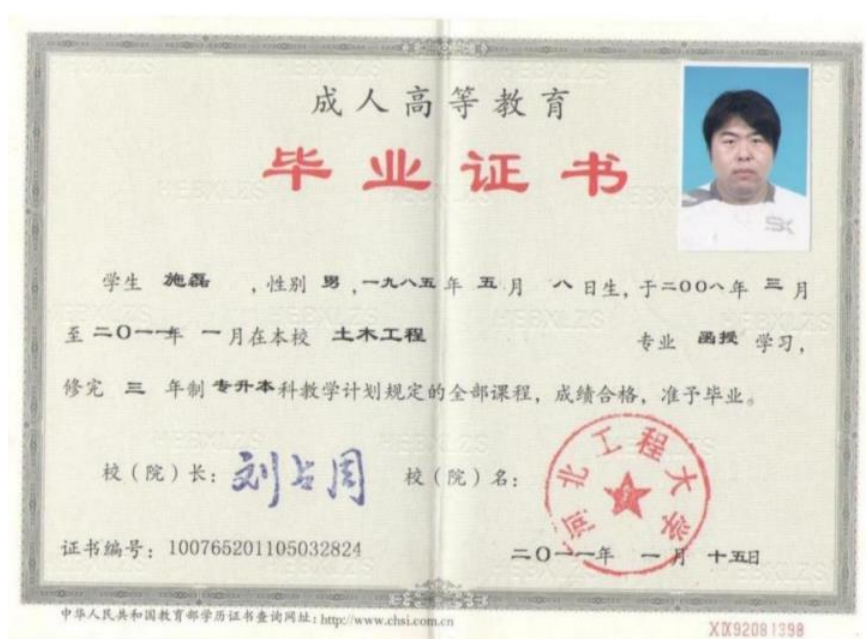 成人高等教育
毕业证书
学生 施磊 ，性别 男 ，一九八五年 五月 八日生，于二00八年 三月
至二0一一年 一月在本校 土木工程 专业 函授 学习，
修完 三 年制 专升本科教学计划规定的全部课程，成绩合格，准予毕业。
校（院）长：刘占周 校（院）名：
河北工程大学
证书编号：100765201105032824 二0一一年 一月 十五日
中华人民共和国教育部学历证书查询网址：http://www.chsi.com.cn
XⅨ92081398